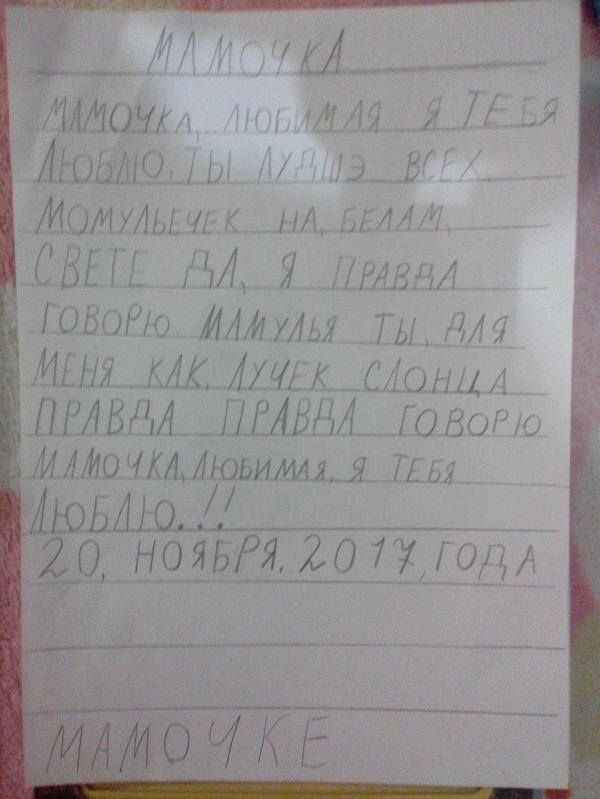 МАМОЧКА
МАМОЧКА, ЛЮБИМАЯ Я ТЕБЯ
ЛЮБЛЮ. ТЫ ЛУДШЭ ВСЕХ.
МОМУЛЬЕЧЕК НА, БЕЛАМ,
СВЕТЕ ДА, Я ПРАВДА
ГОВОРЮ. МАМУЛЬЯ ТЫ, ДЛЯ
МЕНЯ КАК, ЛУЧЕК СЛОНЦА
ПРАВДА ПРАВДА ГОВОРЮ
МАМОЧКА, ЛЮБИМАЯ, Я ТЕБЯ
ЛЮБЛЮ.!!
20, НОЯБРЯ. 2017, ГОДА
МАМОЧКЕ